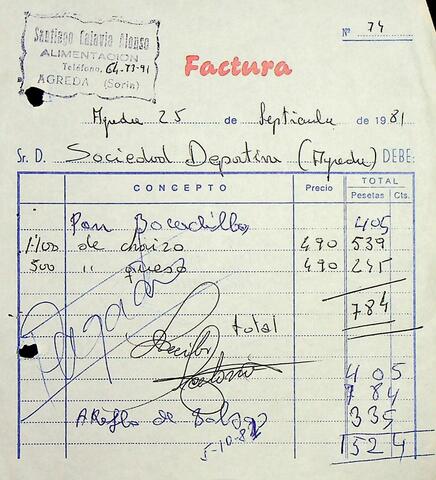 Nº 74
Santiago Calavia Alonso
ALIMENTACION
Teléfono, 64-73-91
AGREDA (Soria)
Factura
Agreda 25 de Septiembre de 1981
Sr. D. Sociedad Deportiva (Agreda) DEBE:
CONCEPTO Precio TOTAL
Pesetas Cts.
Pan Bocadillos 405
1.100 de chorizo 490 539
500 " queso 490 245
784
Pagado
total
Recibí
Calavia
405
784
335
Arreglo de
5-10-81
1524